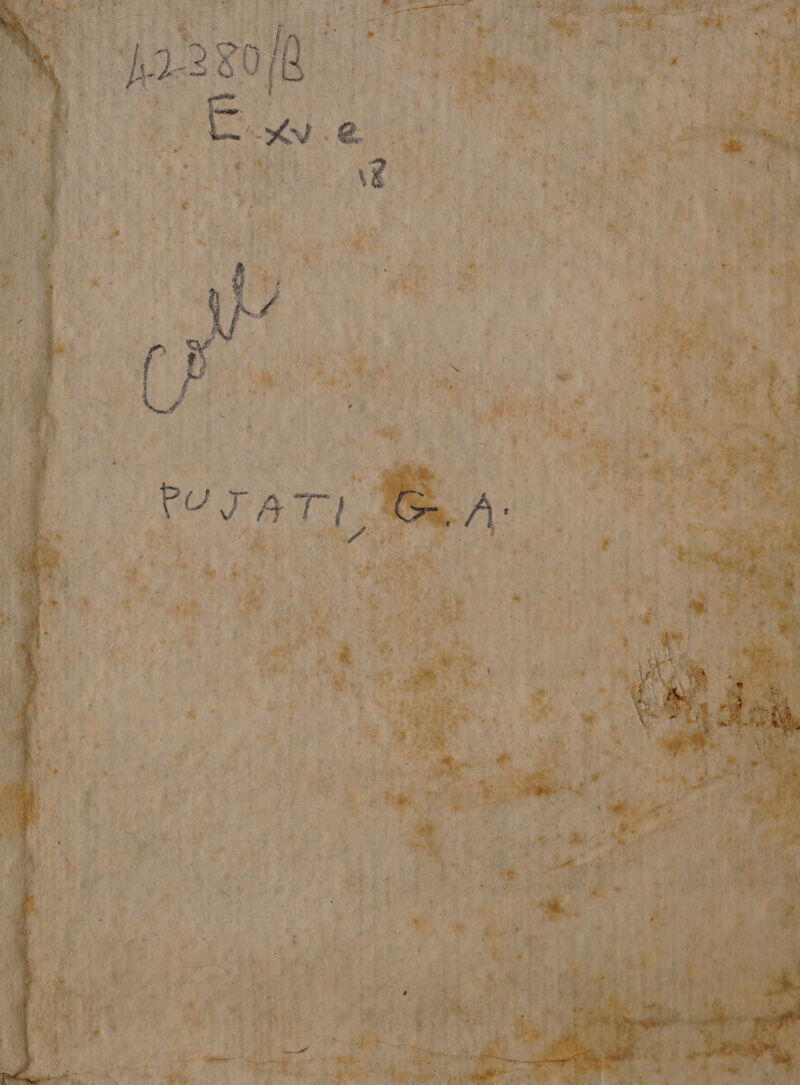 42380/B
E.xv.e
18
Coll
PUJATI, G. A.